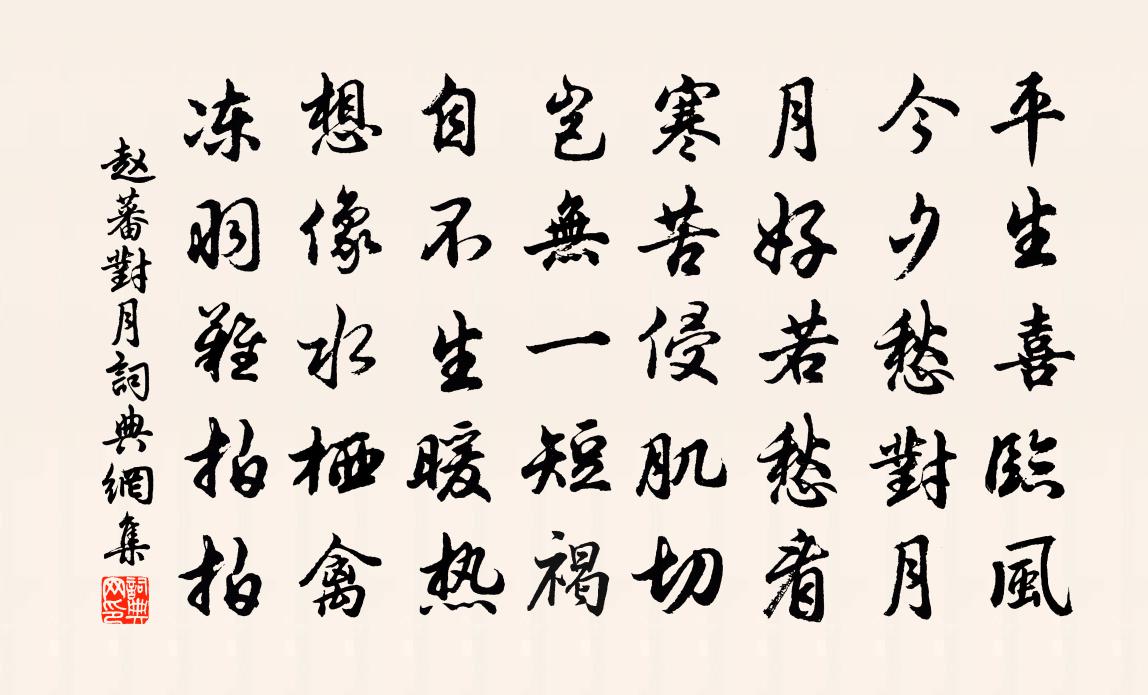 平生喜臨風
今夕愁對月
月好若愁看
寒苦侵肌切
豈無一短褐
自不生暖热
想像水栖禽
冻羽難拍拍
赵蕃對月詞典網集
詞典網印